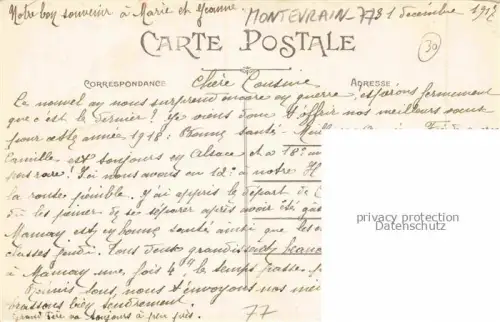 Notre bon souvenir à Marie et Jeanne. MONTEVRAIN 77 31 décembre 191
30
CARTE POSTALE
CORRESPONDANCE ADRESSE
Chère Cousine
Le nouvel an nous surprend encore en guerre, espérons fermement
que c'est le dernier! Je viens donc t'offrir nos meilleurs vœux
pour cette année 1918: Bonne santé
Camille est toujours en Alsace et a 18°
Ici nous avons eu 12° à notre
la route pénible. J'ai appris le départ de
dû les peiner de se séparer après avoir été
Maman est en bonne santé ainsi que les
classes jeudi. Tous deux grandissent
à Maman une fois 4", le temps passe
nous t'envoyons nos
baisons bien tendrement.
Grand Père va toujours à peu près.
77
privacy protection
Datenschutz